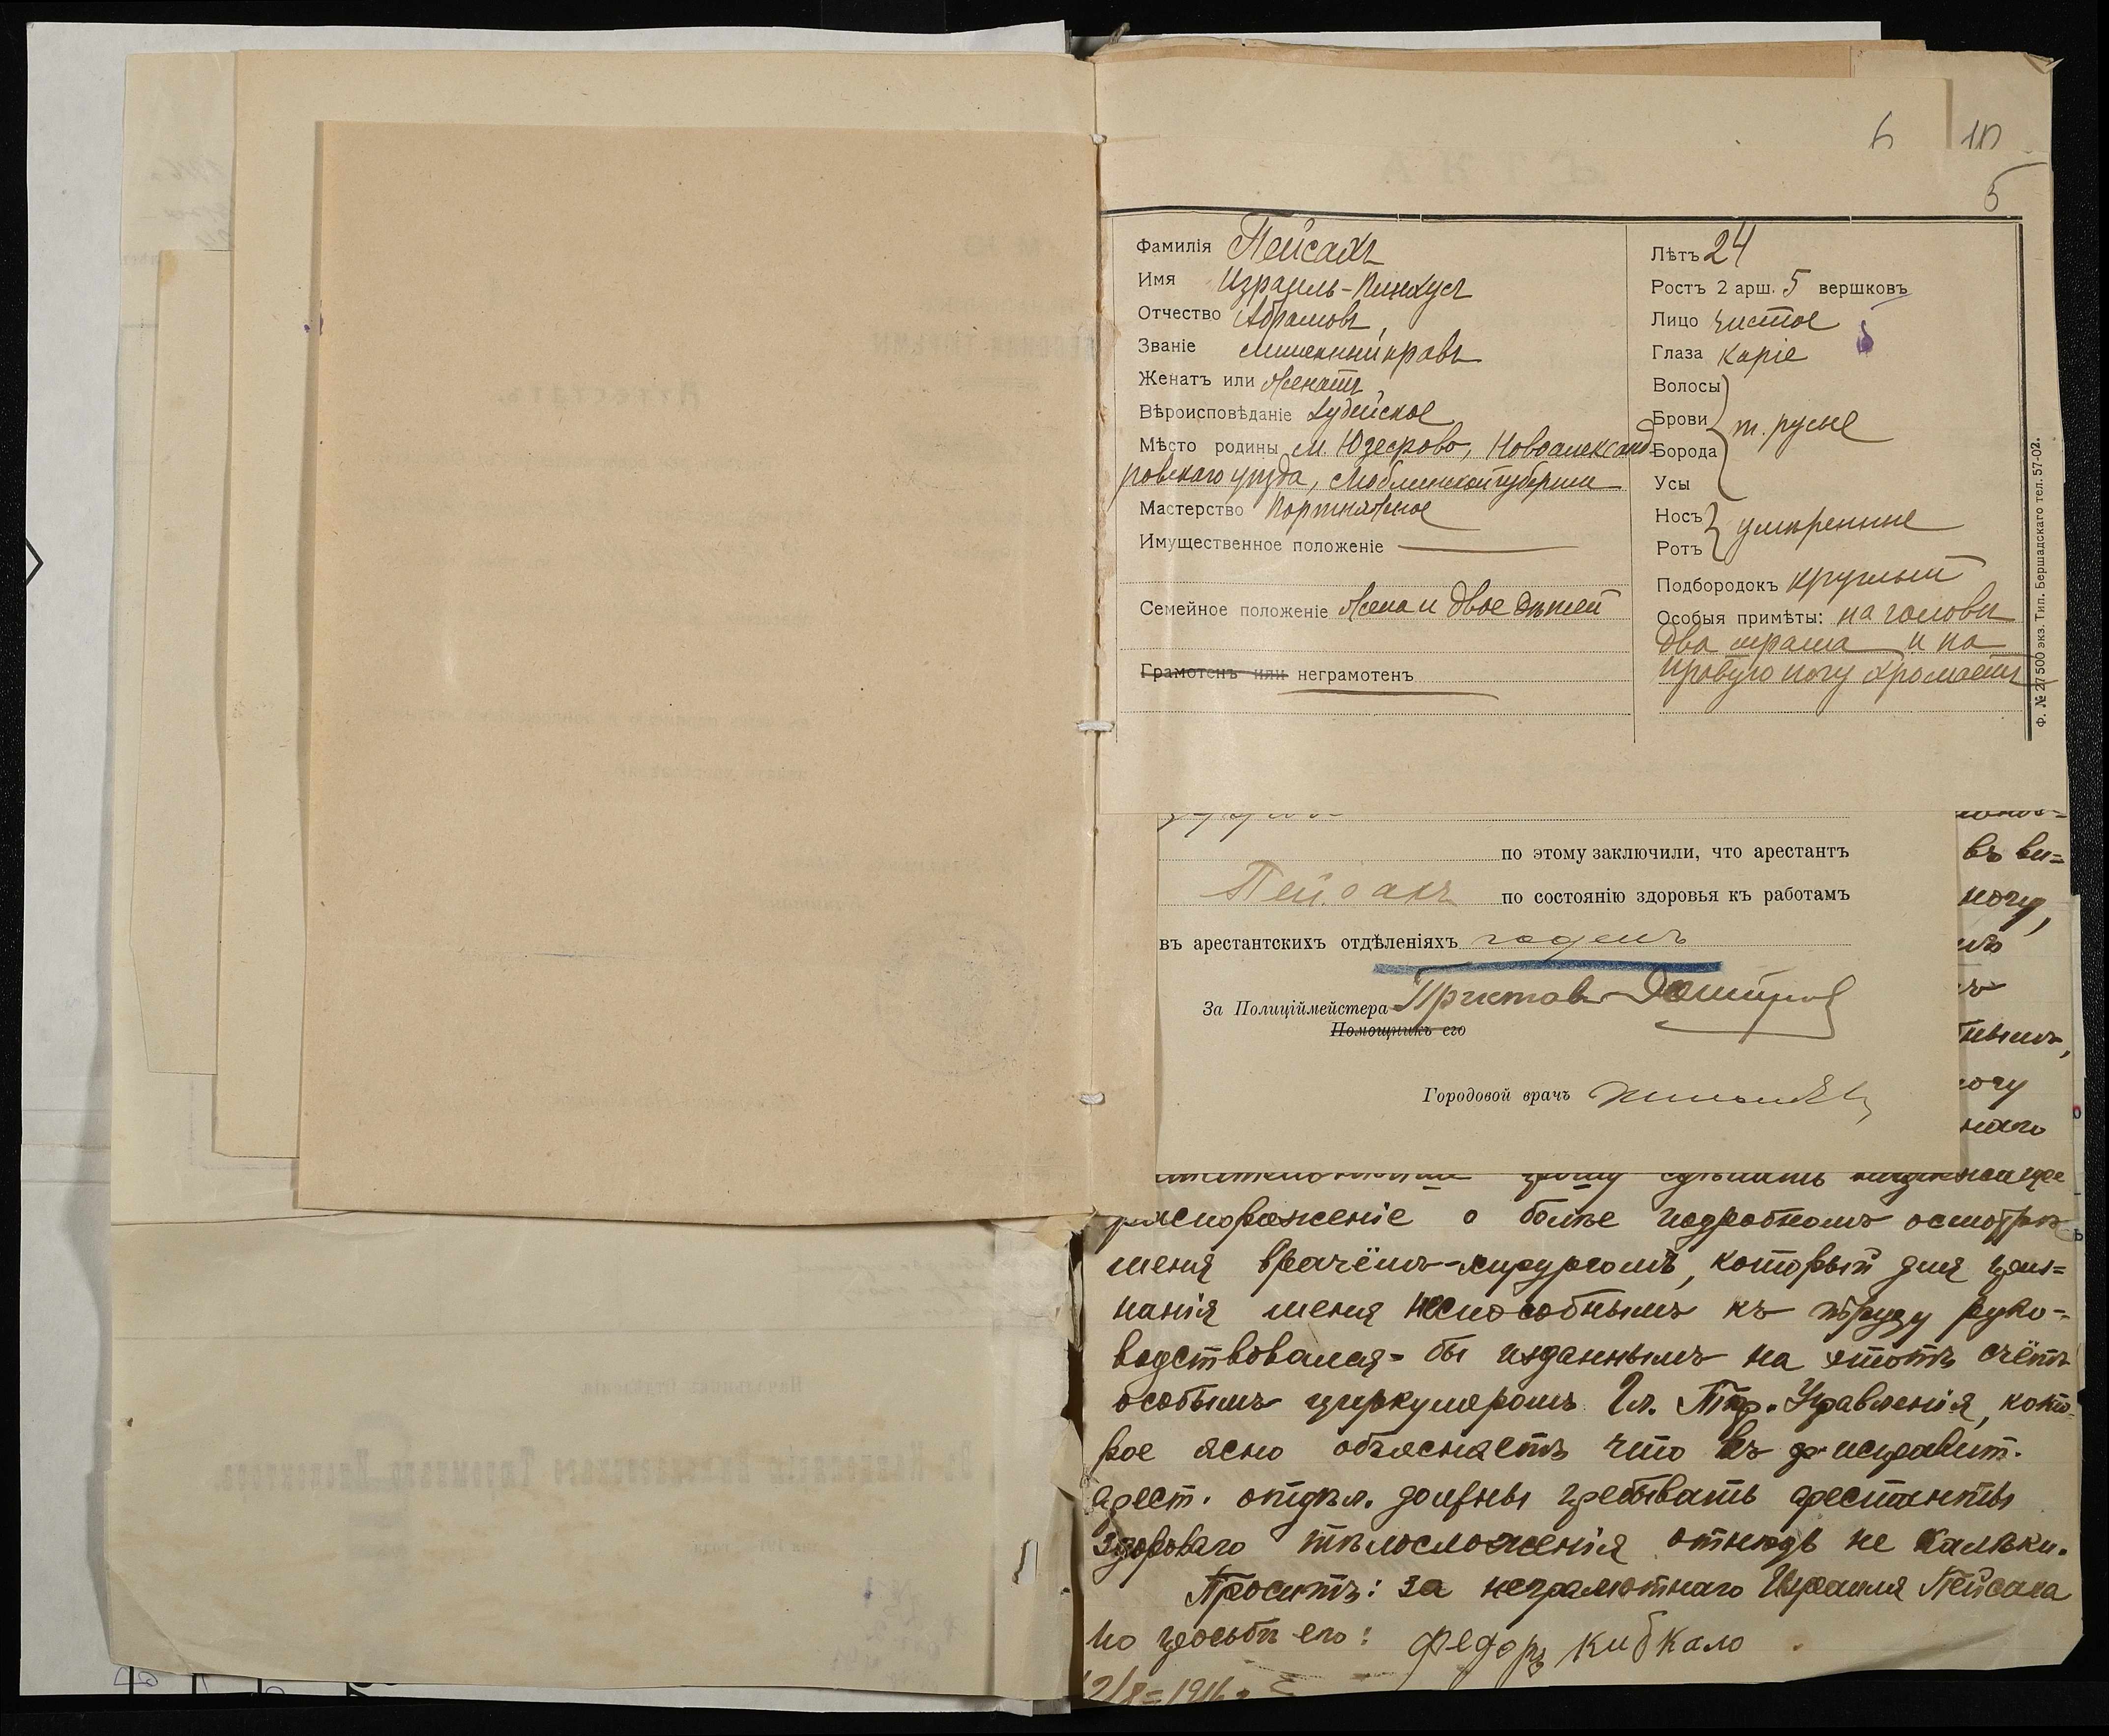 6 10
5
Фамилія Пейсахъ
Имя Израиль-Пинхусъ
Отчество Абрамовъ,
Званіе лишенный правъ
Женатъ или женатъ
Вѣроисповѣданіе Іудейское
Мѣсто родины м. Юзефово, Новоалександ-
ровскаго уѣзда, Люблинской губерніи
Мастерство Портняжное
Имущественное положеніе
Семейное положеніе жена и двое дѣтей
Грамотенъ или неграмотенъ
Лѣтъ 24
Ростъ 2 арш. 5 вершковъ
Лицо чистое
Глаза каріе
Волосы
Брови
Борода
Усы
т. русые
Носъ
Ротъ
умѣренные
Подбородокъ круглый
Особыя примѣты: на головѣ
два шрама и на
правую ногу хромаетъ
Ф. № 27 500 экз. Тип. Бершадскаго тел. 57-02.
по этому заключили, что арестантъ
Пейсахъ по состоянію здоровья къ работамъ
въ арестантскихъ отдѣленіяхъ годенъ
За Полиціймейстера Приставъ
Помощникъ его
Городовой врачъ
въ ви=
ногу,
нымъ,
ногу
наго
сдѣлать надлежащее
распоряженіе о болѣе подробномъ осмотрѣ
меня врачёмъ-хирургомъ, который для приз=
нанія меня неспособнымъ къ труду руко=
водствовался-бы изданнымъ на этотъ счётъ
особымъ циркуляромъ Гл. Тюр. Управленія, кото-
рое ясно объясняетъ что въ исправит.
арест. отдѣл. должны пребывать арестанты
здороваго тѣлосложенія отнюдь не калѣки.
Проситъ: за неграмотнаго Израиля Пейсаха
по просьбѣ его: Федоръ Кибкало
12/8=1916 г.